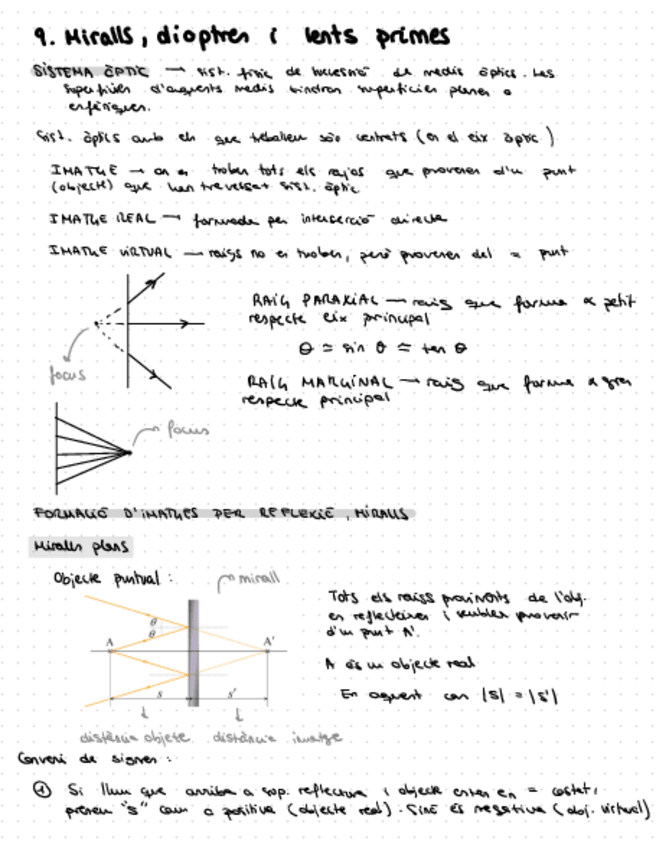 9. Miralls, dioptres i lents primes
SISTEMA ÒPTIC → sist. físic de successió de medis òptics. Les
superfícies d'aquests medis tindran superfícies planes o
esfèriques.
Sist. òptics amb els que treballem són centrats (en el eix òptic)
IMATGE → on es troben tots els rajos que provenen d'un punt
(objecte) que han travessat sist. òptic
IMATGE REAL → formada per intersecció directa
IMATGE VIRTUAL → raigs no es troben, però provenen del = punt
focus
RAIG PARAXIAL → raig que forma α petit
respecte eix principal
θ ≃ sin θ ≃ tan θ
RAIG MARGINAL → raig que forma α gran
respecte principal
focus
FORMACIÓ D'IMATGES PER REFLEXIÓ, MIRALLS
Miralls plans
Objecte puntual:
mirall
θ
θ
A
A'
s
s'
distància objecte
distància imatge
Tots els raigs provinents de l'obj.
es reflecteixen i semblen provenir
d'un punt A'.
A és un objecte real
En aquest cas |s| = |s'|
Conveni de signes:
① Si llum que arriba a sup. reflectora i objecte estan en = costat,
prenem "s" com a positiva (objecte real). Sinó és negativa (obj. virtual)